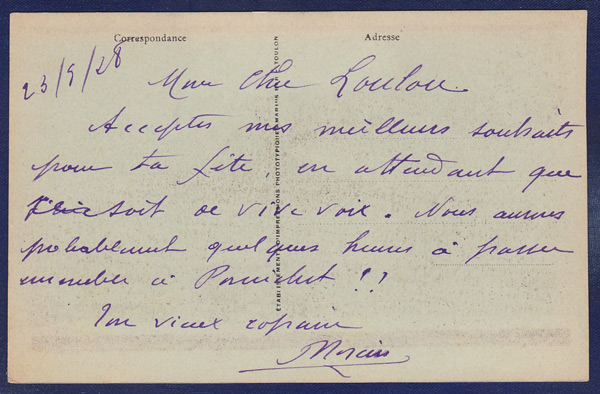 Correspondance
Adresse
23/9/28
Mon Cher Loulou.
Acceptes mes meilleurs souhaits
pour ta fête, en attendant que
soit de vive voix. Nous aurons
probablement quelques heures à passer
ensemble à !!
Ton vieux copain
ÉTABLISSEMENTS D'IMPRESSIONS PHOTOTYPIQUES MARIUS TOULON